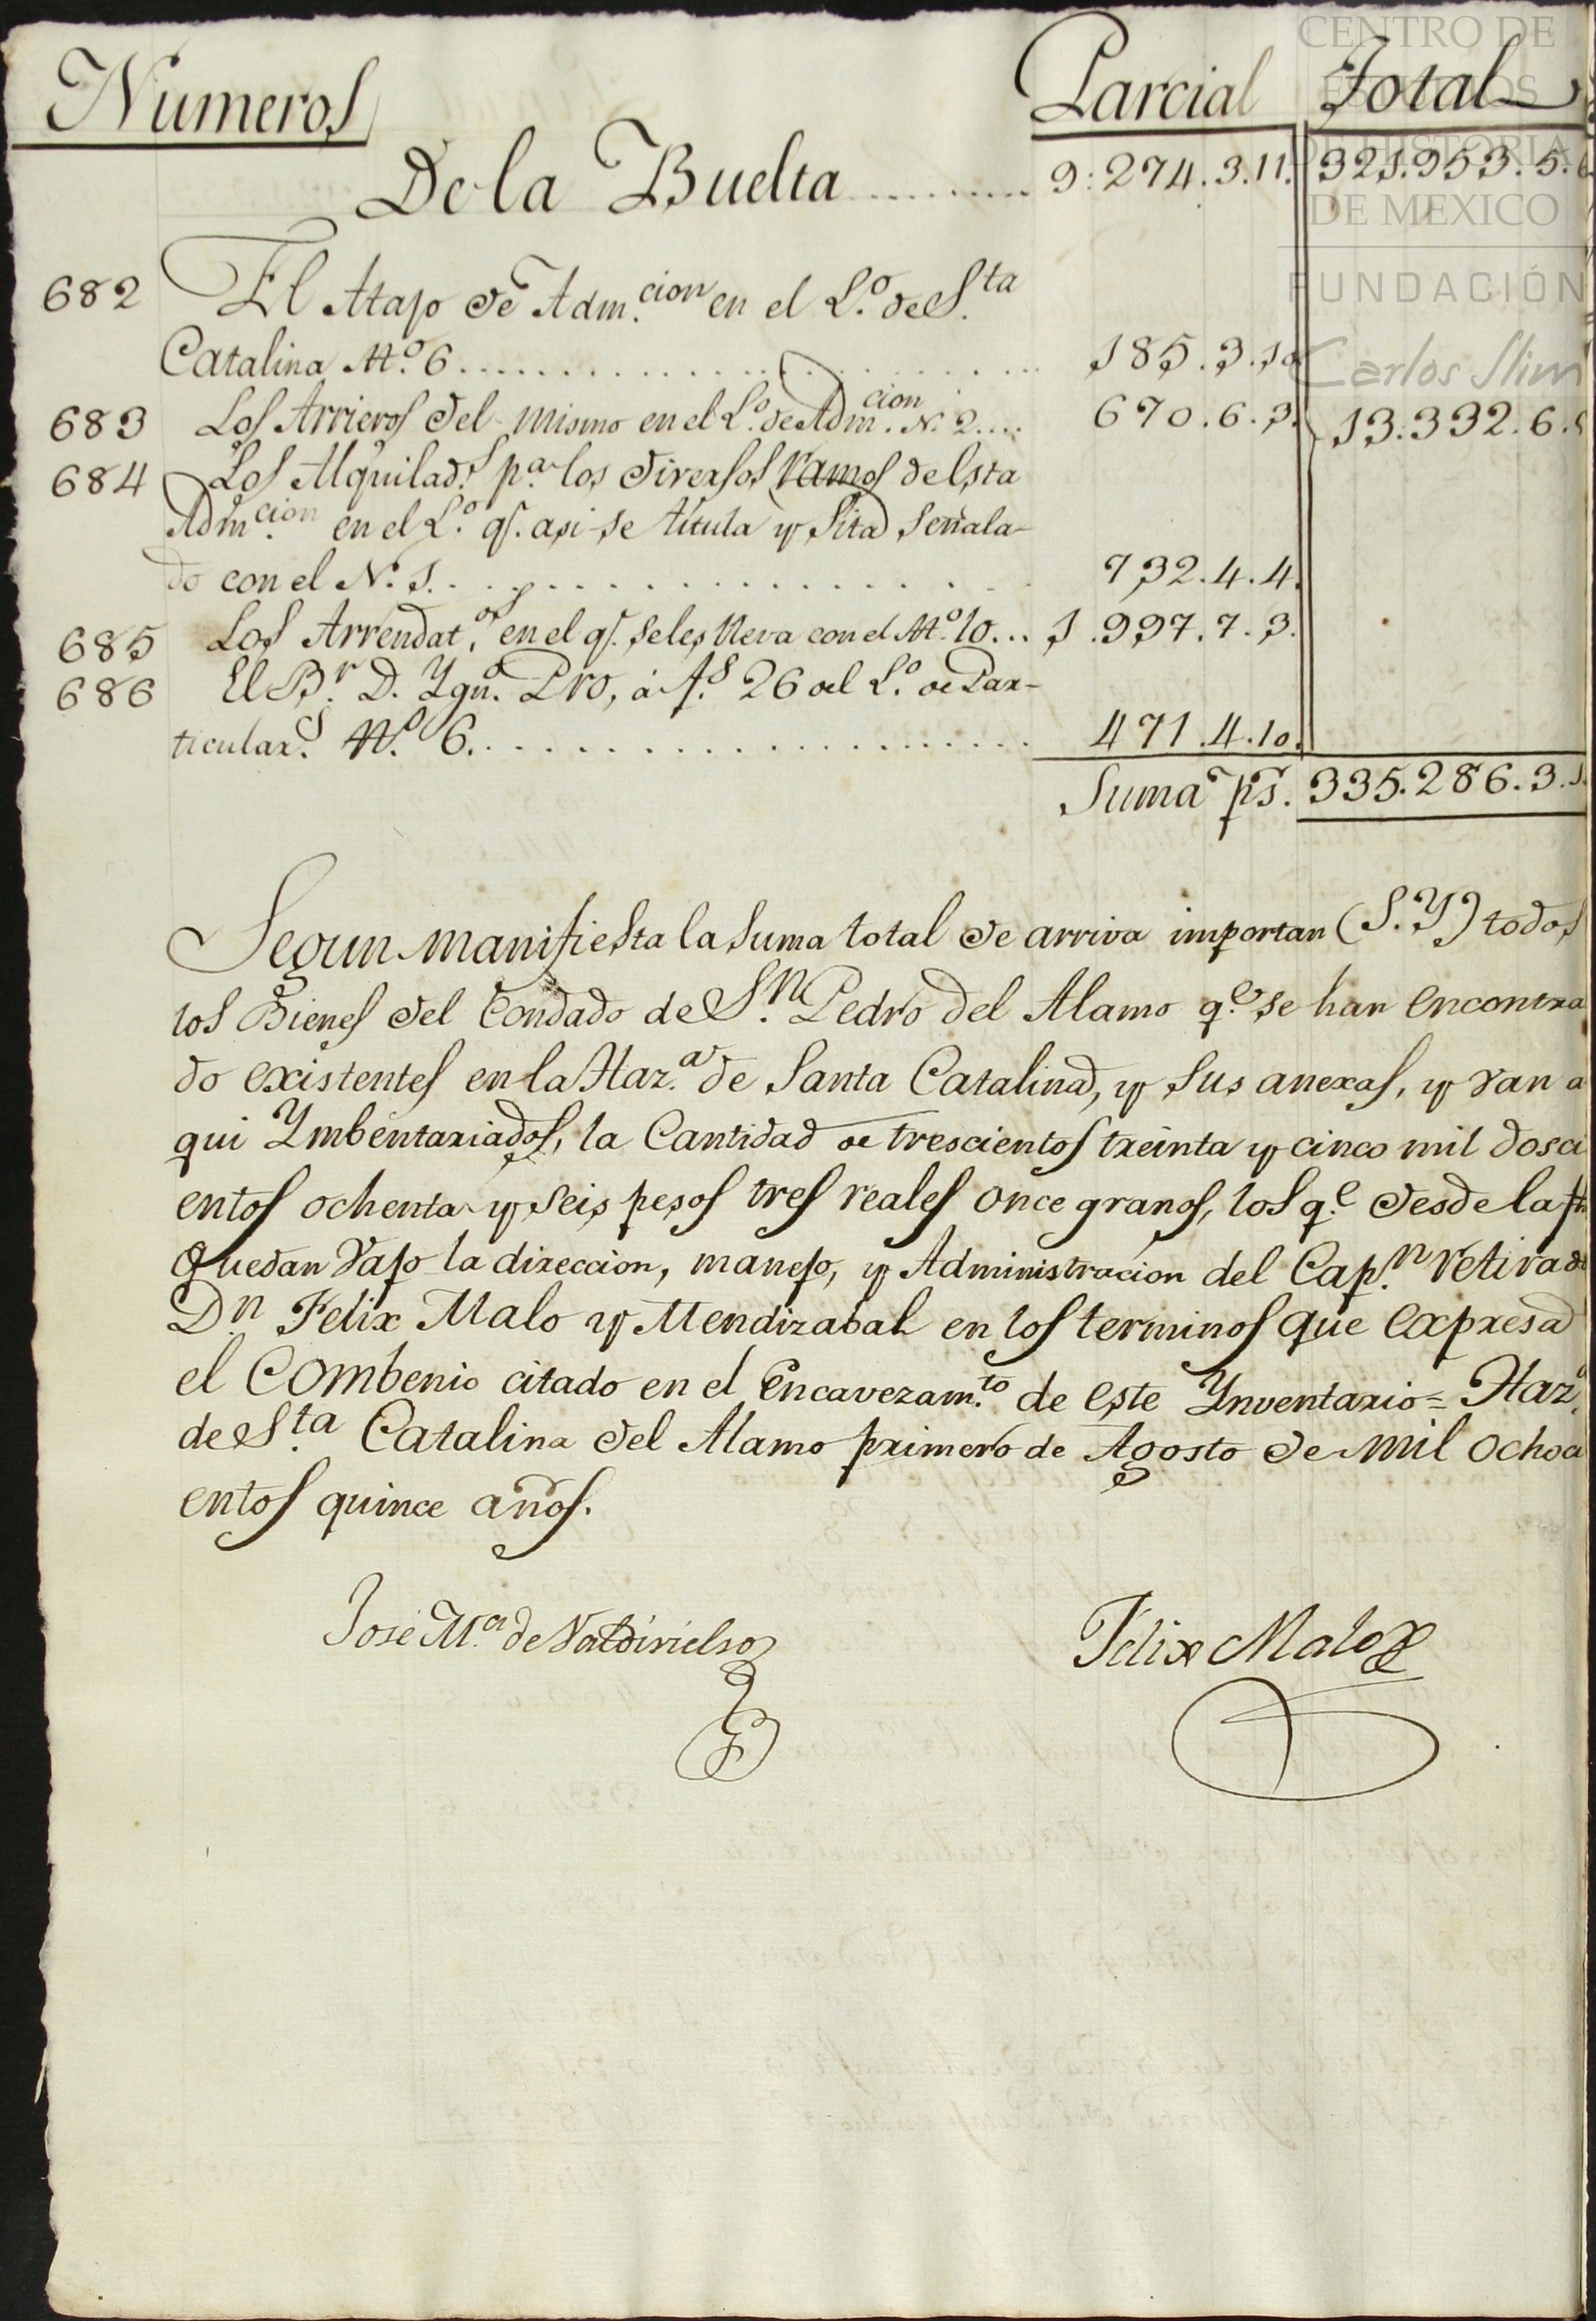 Numeros
Parcial
Total
De la Buelta ......... 9:274.3.11. 321.953.5.
682 El Atajo de Adm.cion en el L.o de S.ta
Catalina N.o 6 ......................... 185.3.10
683 Los Arrieros del mismo en el L.o de Adm.cion N. 2.... 670.6.3. 13.332.6.
684 Los Alquilad.s p.a los diversos ramos de esta
Adm.cion en el L.o q.e asi se titula y sita señala-
do con el N. 1. ..................... 732.4.4.
685 Los Arrendat.os en el q.e se les lleva con el N.o 10... 1.997.7.3.
686 El B.r D. Ygn.o Pro, á f.s 26 del L.o de Par-
ticular.s N.o 6. ..................... 471.4.10.
Suma ps. 335.286.3.
Segun manifiesta la suma total de arriva importan (S.Y.) todos
los Bienes del Condado de S.n Pedro del Alamo q.e se han encontra
do existentes en la Haz.a de Santa Catalina, y sus anexas, y van a
qui Ymbentariados, la Cantidad de trescientos treinta y cinco mil dosci
entos ochenta y seis pesos tres reales once granos, los q.e desde la fha
quedan vajo la direccion, manejo, y Administracion del Cap.n retirado
Dn Felix Malo y Mendizabal en los terminos que expresa
el Combenio citado en el Encavezam.to de este Ynventario = Haz.a
de S.ta Catalina del Alamo primero de Agosto de mil ochoci
entos quince años.
José M.a de Valdivielso
Felix Malo
CENTRO DE
ESTUDIOS
DE HISTORIA
DE MEXICO
FUNDACIÓN
Carlos Slim